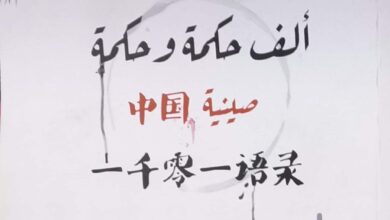 ألف حكمة وحكمة
صينية 中国
一千零一语录